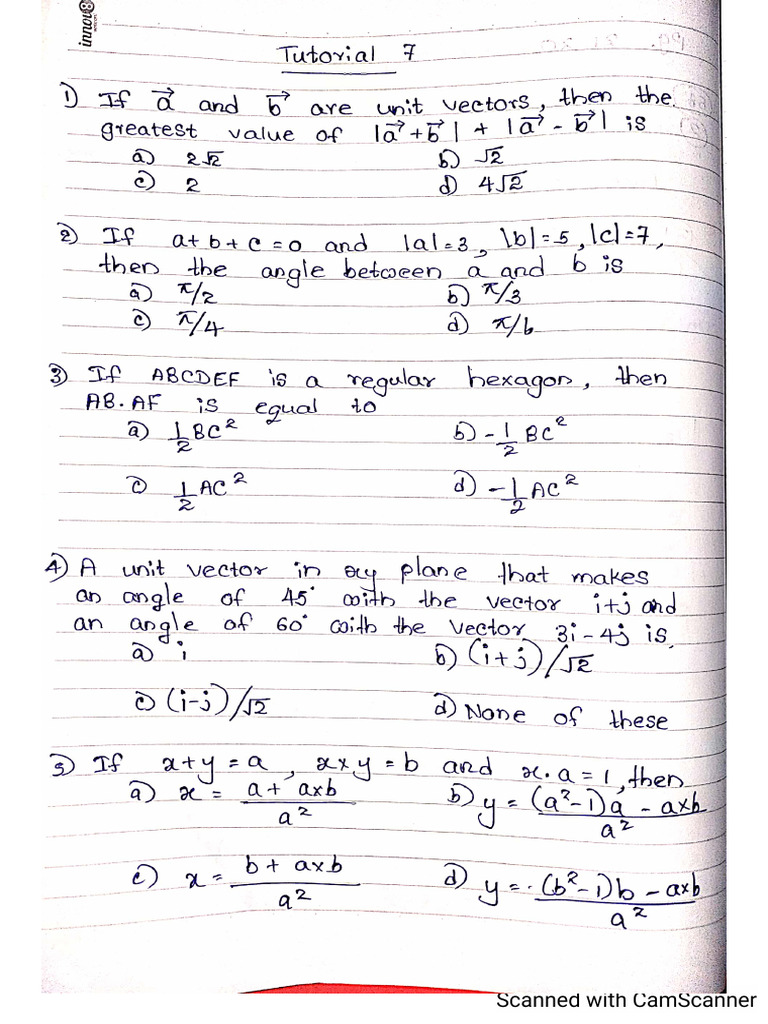 innov8
Tutorial 7
1) If a⃗ and b⃗ are unit vectors, then the
greatest value of |a⃗+b⃗| + |a⃗ - b⃗| is
a) 2√2 b) √2
c) 2 d) 4√2
2) If a+b+c=0 and |a|=3, |b|=5, |c|=7,
then the angle between a and b is
a) π/2 b) π/3
c) π/4 d) π/6
3) If ABCDEF is a regular hexagon, then
AB.AF is equal to
a) 1/2 BC² b) -1/2 BC²
c) 1/2 AC² d) -1/2 AC²
4) A unit vector in xy plane that makes
an angle of 45° with the vector i+j and
an angle of 60° with the vector 3i-4j is,
a) i b) (i+j)/√2
c) (i-j)/√2 d) None of these
5) If x+y=a, x×y=b and x.a=1, then
a) x = (a+a×b)/a² b) y = ((a²-1)a - a×b)/a²
c) x = (b+a×b)/a² d) y = (b²-1)b - a×b/a²
Scanned with CamScanner